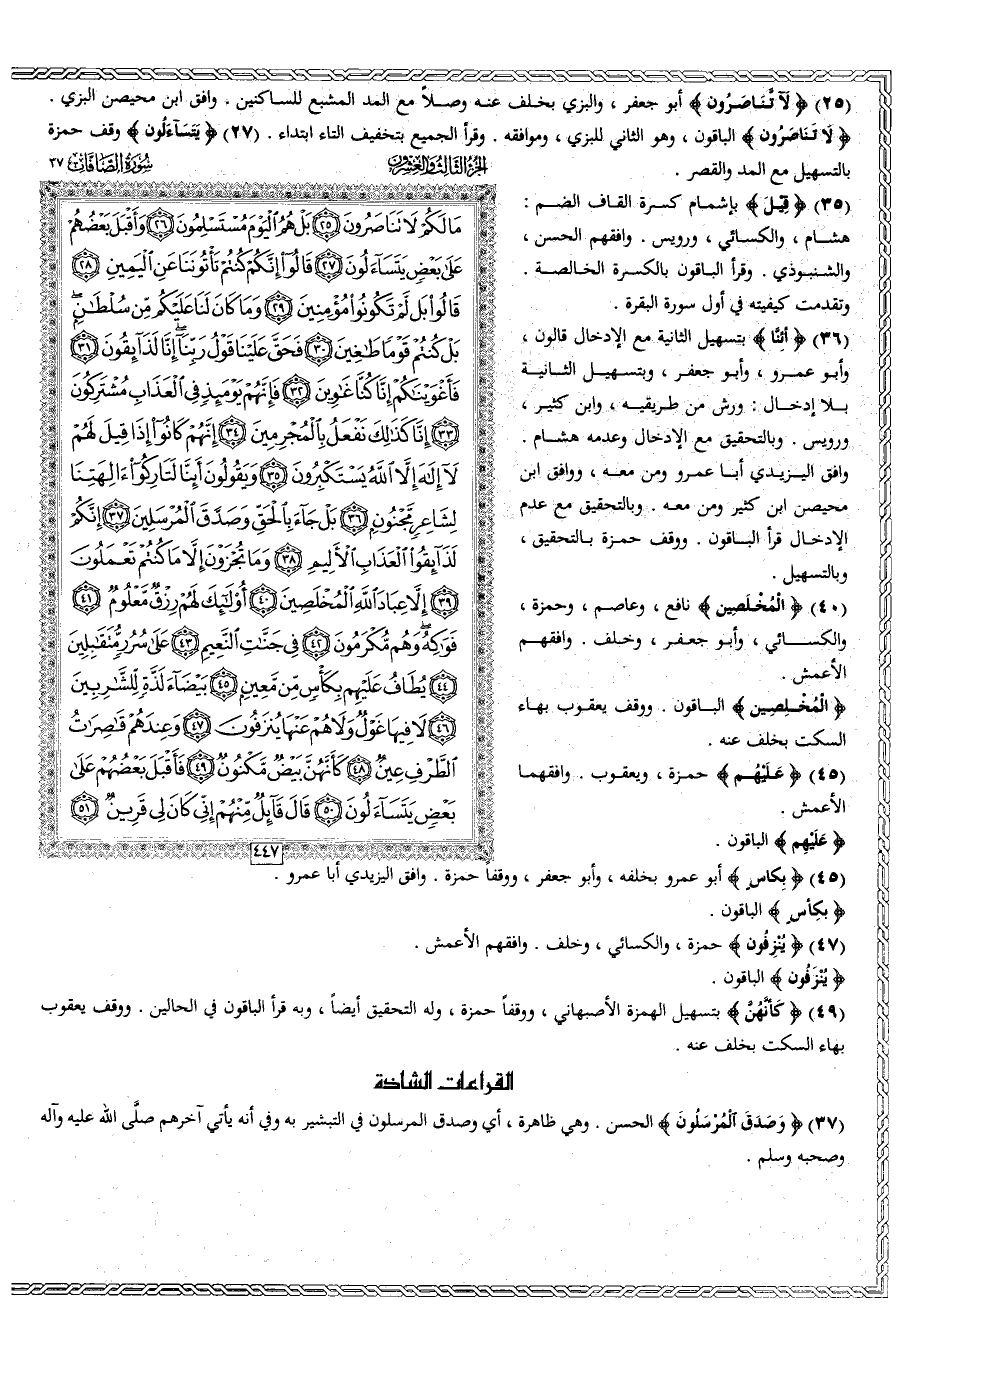 (٢٥) ﴿ لَآ تَّنَاصَرُون ﴾ أبو جعفر ، والبزي بخلف عنه وصلاً مع المد المشبع للساكنين . وافق ابن محيصن البزي .
﴿ لَا تَنَاصَرُون ﴾ الباقون ، وهو الثاني للبزي ، وموافقه . وقرأ الجميع بتخفيف التاء ابتداء . (٢٧) ﴿ يَتَسَآءَلُون ﴾ وقف حمزة
بالتسهيل مع المد والقصر .
(٣٥) ﴿ قِيلَ ﴾ بإشمام كسرة القاف الضم :
هشام ، والكسائي ، ورويس . وافقهم الحسن ،
والشنبوذي . وقرأ الباقون بالكسرة الخالصة .
وتقدمت كيفيته في أول سورة البقرة .
(٣٦) ﴿ أَئِنَّا ﴾ بتسهيل الثانية مع الإدخال قالون ،
وأبو عمرو ، وأبو جعفر ، وبتسهيل الثانية
بلا إدخال : ورش من طريقيه ، وابن كثير ،
ورويس . وبالتحقيق مع الإدخال وعدمه هشام .
وافق اليزيدي أبا عمرو ومن معه ، ووافق ابن
محيصن ابن كثير ومن معه . وبالتحقيق مع عدم
الإدخال قرأ الباقون . ووقف حمزة بالتحقيق ،
وبالتسهيل .
(٤٠) ﴿ الْمُخْلَصِين ﴾ نافع ، وعاصم ، وحمزة ،
والكسائي ، وأبو جعفر ، وخلف . وافقهم
الأعمش .
﴿ الْمُخْلِصِين ﴾ الباقون . ووقف يعقوب بهاء
السكت بخلف عنه .
(٤٥) ﴿ عَلَيْهُم ﴾ حمزة ، ويعقوب . وافقهما
الأعمش .
﴿ عَلَيْهِم ﴾ الباقون .
الجزء الثالث والعشرون
سورة الصافات ٣٧
مَا لَكُمْ لَا تَنَاصَرُونَ ٢٥ بَلْ هُمُ ٱلْيَوْمَ مُسْتَسْلِمُونَ ٢٦ وَأَقْبَلَ بَعْضُهُمْ
عَلَىٰ بَعْضٍ يَتَسَآءَلُونَ ٢٧ قَالُوٓا۟ إِنَّكُمْ كُنتُمْ تَأْتُونَنَا عَنِ ٱلْيَمِينِ ٢٨
قَالُوا۟ بَل لَّمْ تَكُونُوا۟ مُؤْمِنِينَ ٢٩ وَمَا كَانَ لَنَا عَلَيْكُم مِّن سُلْطَٰنٍۭ ۖ
بَلْ كُنتُمْ قَوْمًا طَٰغِينَ ٣٠ فَحَقَّ عَلَيْنَا قَوْلُ رَبِّنَآ ۖ إِنَّا لَذَآئِقُونَ ٣١
فَأَغْوَيْنَٰكُمْ إِنَّا كُنَّا غَٰوِينَ ٣٢ فَإِنَّهُمْ يَوْمَئِذٍ فِى ٱلْعَذَابِ مُشْتَرِكُونَ
٣٣ إِنَّا كَذَٰلِكَ نَفْعَلُ بِٱلْمُجْرِمِينَ ٣٤ إِنَّهُمْ كَانُوٓا۟ إِذَا قِيلَ لَهُمْ
لَآ إِلَٰهَ إِلَّا ٱللَّهُ يَسْتَكْبِرُونَ ٣٥ وَيَقُولُونَ أَئِنَّا لَتَارِكُوٓا۟ ءَالِهَتِنَا
لِشَاعِرٍ مَّجْنُونٍۭ ٣٦ بَلْ جَآءَ بِٱلْحَقِّ وَصَدَّقَ ٱلْمُرْسَلِينَ ٣٧ إِنَّكُمْ
لَذَآئِقُوا۟ ٱلْعَذَابِ ٱلْأَلِيمِ ٣٨ وَمَا تُجْزَوْنَ إِلَّا مَا كُنتُمْ تَعْمَلُونَ
٣٩ إِلَّا عِبَادَ ٱللَّهِ ٱلْمُخْلَصِينَ ٤٠ أُو۟لَٰٓئِكَ لَهُمْ رِزْقٌ مَّعْلُومٌ ٤١
فَوَٰكِهُ ۖ وَهُم مُّكْرَمُونَ ٤٢ فِى جَنَّٰتِ ٱلنَّعِيمِ ٤٣ عَلَىٰ سُرُرٍ مُّتَقَٰبِلِينَ
٤٤ يُطَافُ عَلَيْهِم بِكَأْسٍ مِّن مَّعِينٍۭ ٤٥ بَيْضَآءَ لَذَّةٍ لِّلشَّٰرِبِينَ
٤٦ لَا فِيهَا غَوْلٌ وَلَا هُمْ عَنْهَا يُنزَفُونَ ٤٧ وَعِندَهُمْ قَٰصِرَٰتُ
ٱلطَّرْفِ عِينٌ ٤٨ كَأَنَّهُنَّ بَيْضٌ مَّكْنُونٌ ٤٩ فَأَقْبَلَ بَعْضُهُمْ عَلَىٰ
بَعْضٍ يَتَسَآءَلُونَ ٥٠ قَالَ قَآئِلٌ مِّنْهُمْ إِنِّى كَانَ لِى قَرِينٌ ٥١
٤٤٧
(٤٥) ﴿ بِكاسٍ ﴾ أبو عمرو بخلفه ، وأبو جعفر ، ووقفاً حمزة . وافق اليزيدي أبا عمرو .
﴿ بكَأسٍ ﴾ الباقون .
(٤٧) ﴿ يُنْزِفُون ﴾ حمزة ، والكسائي ، وخلف . وافقهم الأعمش .
﴿ يُنْزَفُون ﴾ الباقون .
(٤٩) ﴿ كَأَنَّهُنَّ ﴾ بتسهيل الهمزة الأصبهاني ، ووقفاً حمزة ، وله التحقيق أيضاً ، وبه قرأ الباقون في الحالين . ووقف يعقوب
بهاء السكت بخلف عنه .
القراءات الشاذة
(٣٧) ﴿ وَصَدَقَ ٱلْمُرْسَلُونَ ﴾ الحسن . وهي ظاهرة ، أي وصدق المرسلون في التبشير به وفي أنه يأتي آخرهم صلَّى الله عليه وآله
وصحبه وسلم .